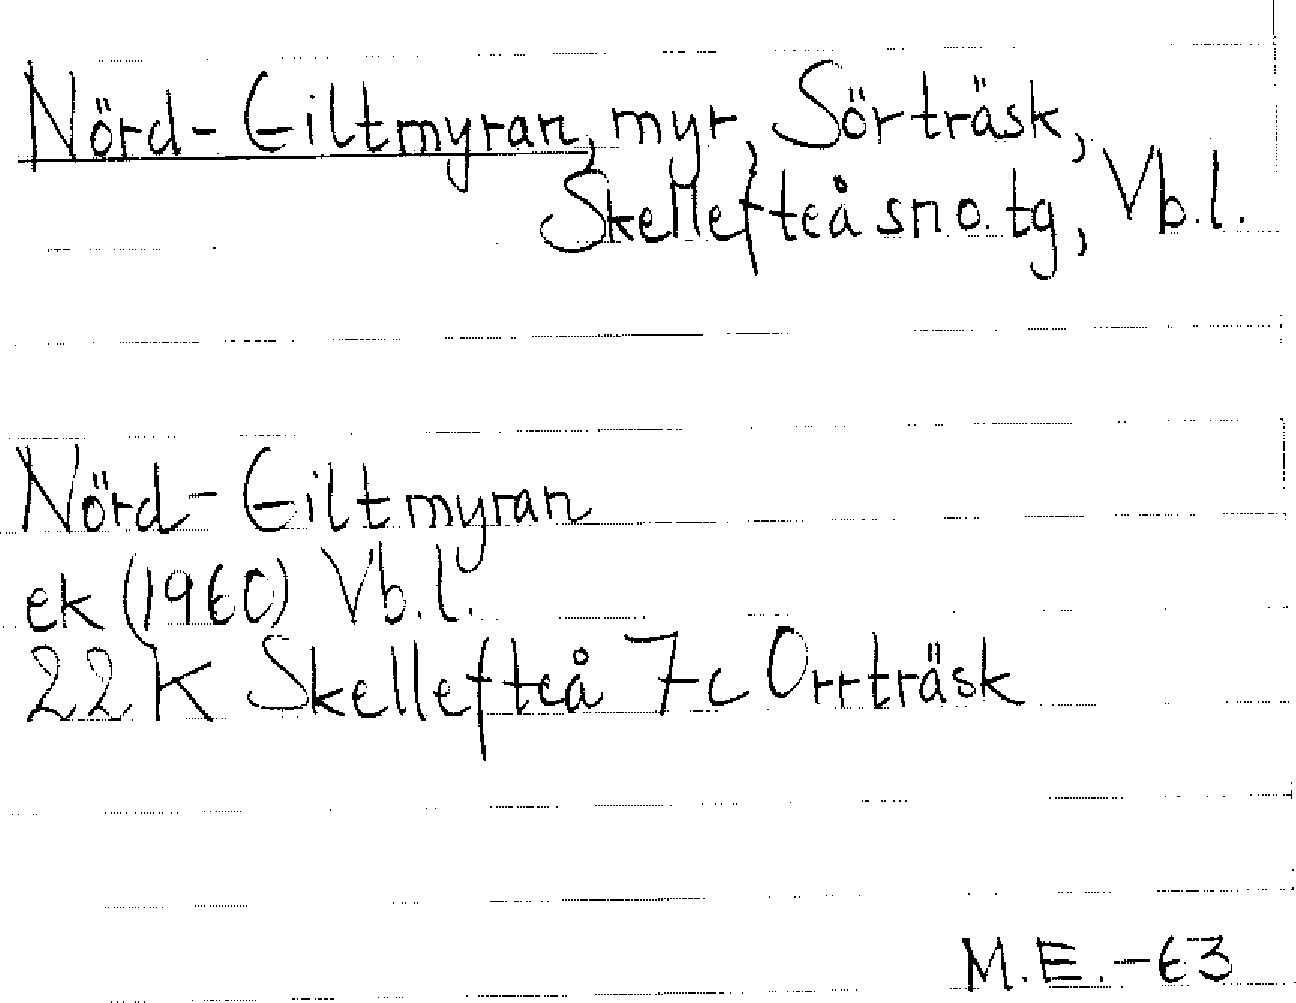 Nörd-Giltmyran, myr, Sörträsk,
Skellefteå sn o. tg, Vb.l.
Nörd-Giltmyran
ek (1960) Vb.l.
22 K Skellefteå 7c Orrträsk
M.E. -63